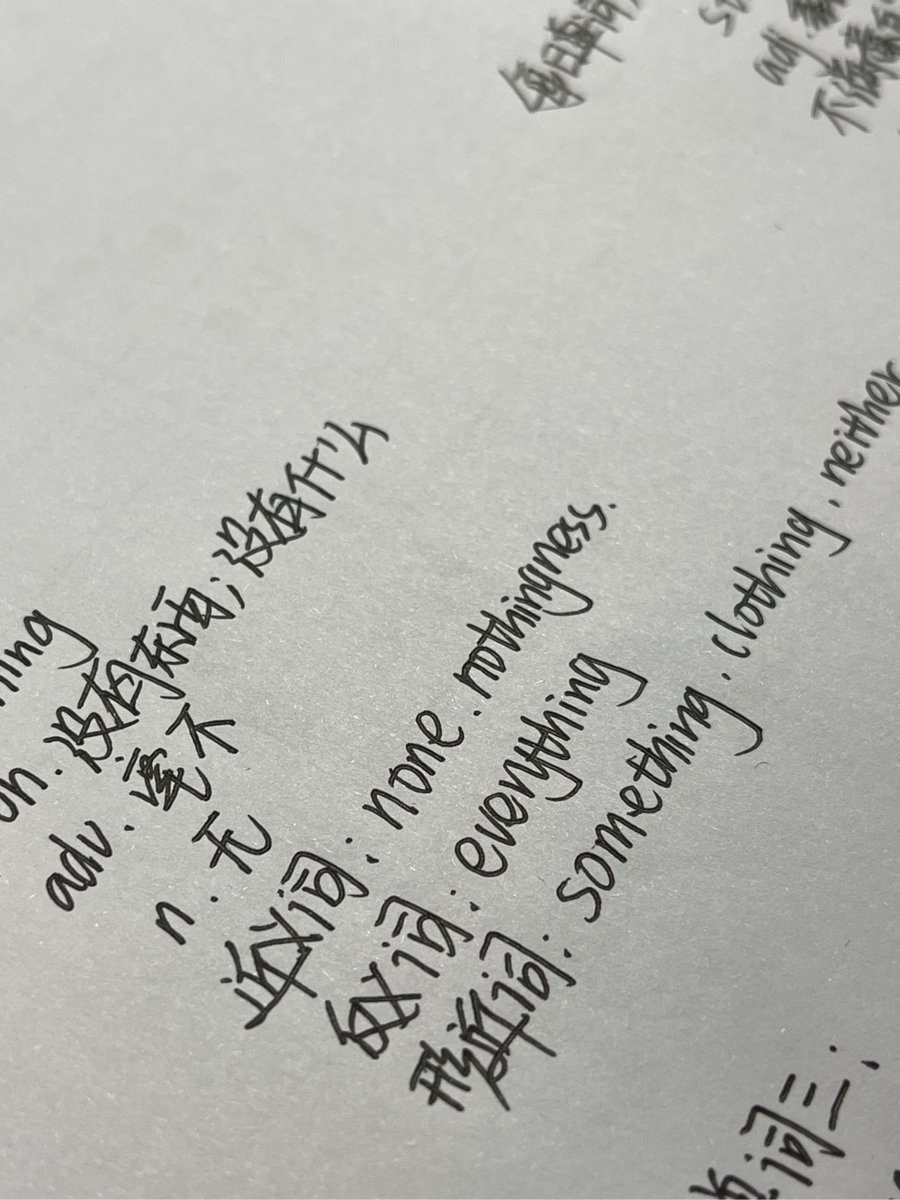 每日单词
adj.
ing
on. 没有东西; 没有什么
adv. 毫不
n. 无
近义词: none. nothingness.
反义词: everything
形近词: something. clothing. neither
词三: